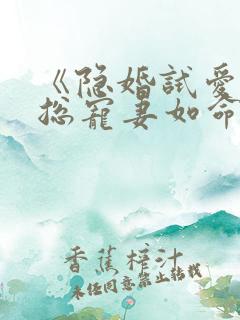 《隐婚试爱
总宠妻如命
香蕉榨汁
未经同意禁止转载